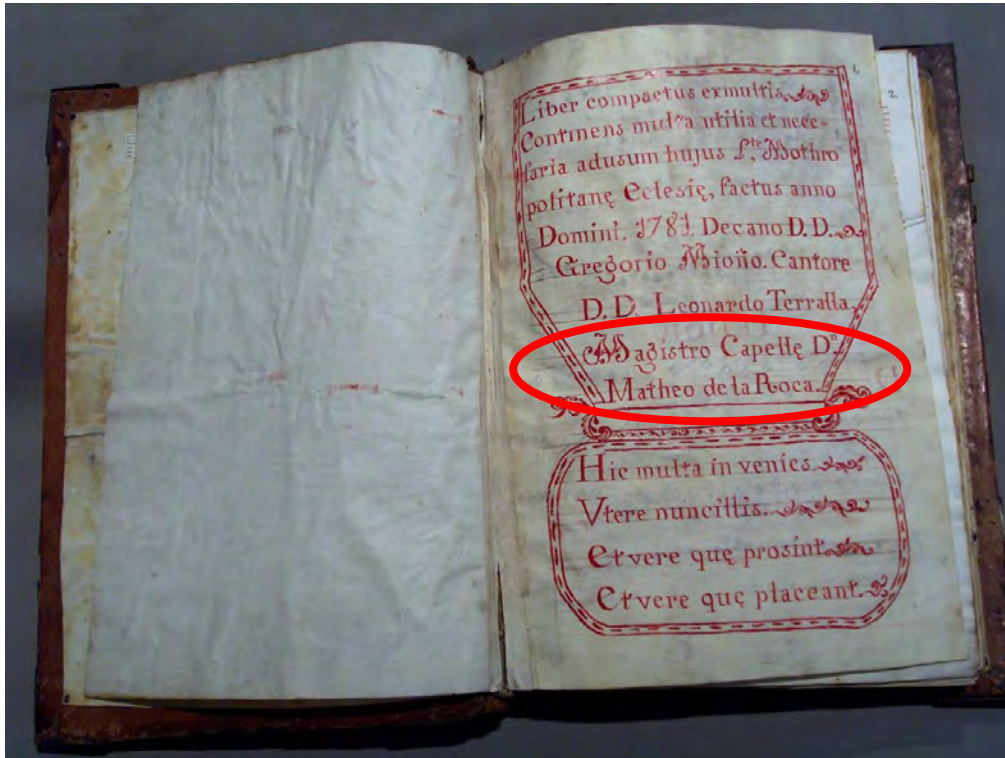 Liber compactus exmultis
Continens multa utilia et nece-
saria adusum hujus S.te Mothro
politanę Eclesię, factus anno
Domini. 1781. Decano D. D.
Gregorio Mioño. Cantore
D. D. Leonardo Terralla
Magistro Capellę D.n
Matheo de la Roca.
Hic multa in venies
Vtere nuncillis.
Et vere quę prosint
Et vere quę placeant.
1.
2.